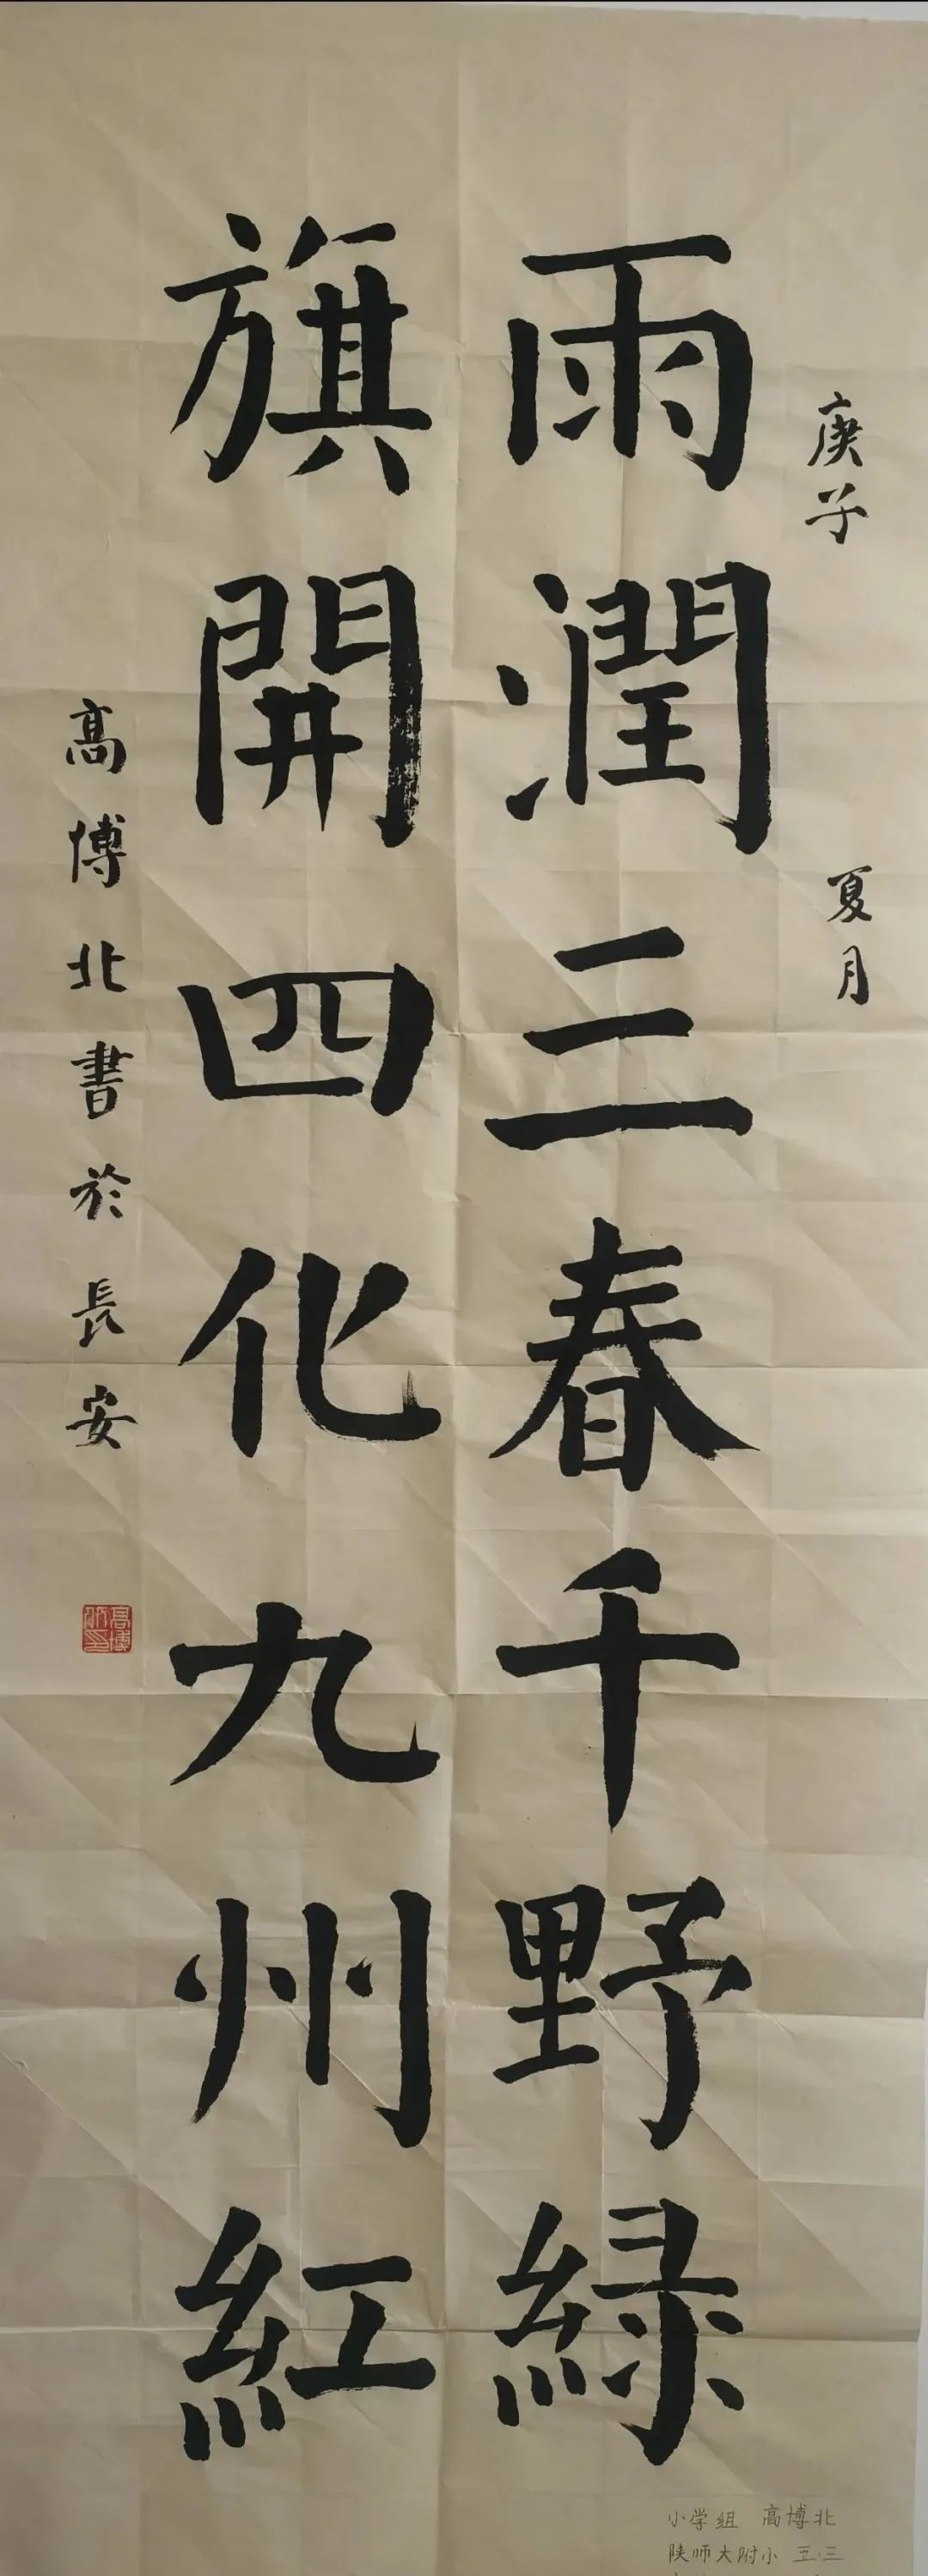 庚子
夏月
雨潤三春千野緑
旗開四化九州紅
高博北書於長安
小学组 高博北
陕师大附小 五.三